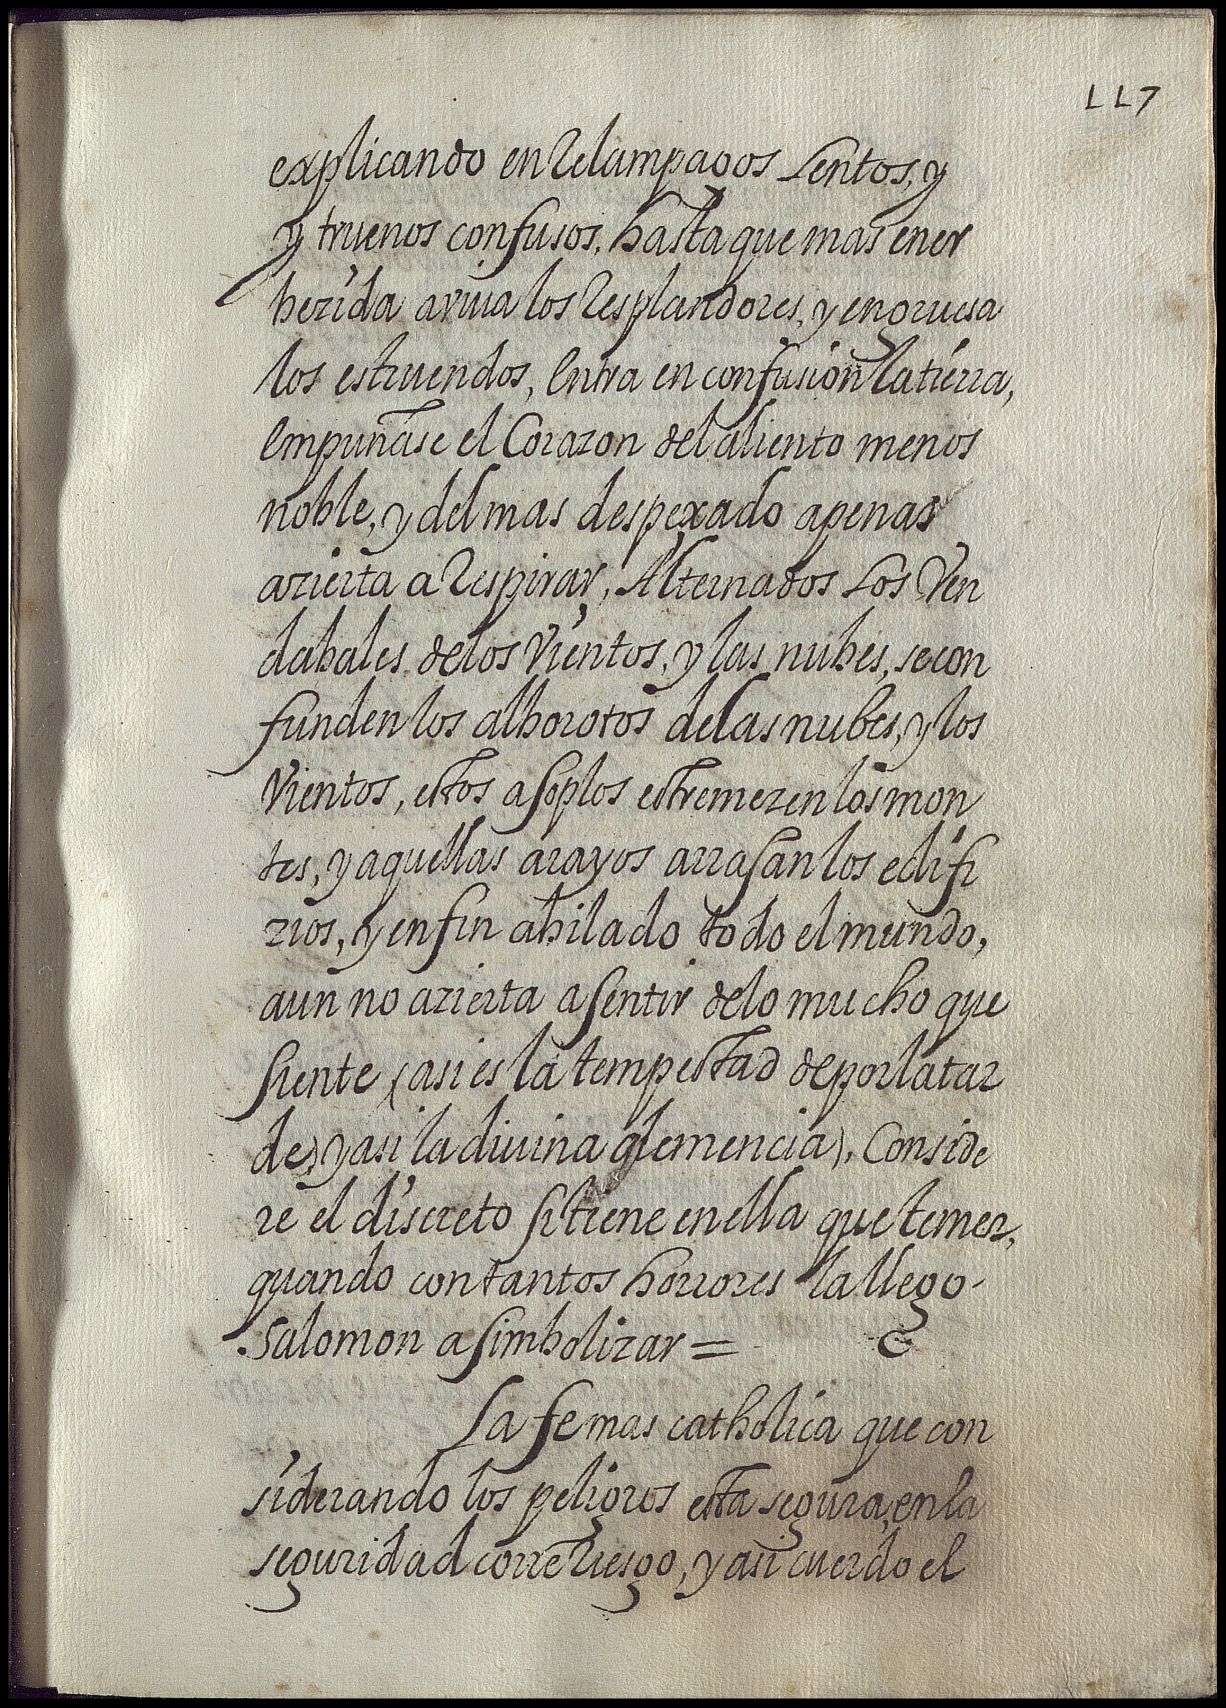 117
explicando en Relampagos Lentos, y
y truenos confusos, hasta que mas ener
bezida aviua los Resplandores, y engruesa
los estruendos, Entra en confusion la tierra,
Empuñase el Corazon del aliento menos
noble, y del mas despexado apenas
azierta a Respirar, Alternados Los Ven
dabales de los Vientos, y las nubes, se con
funden los alborotos de las nubes, y los
Vientos, estos a soplos estremezen los mon
tes, y aquellas arayos arrasan los edifi
zios, y en fin ahilado todo el mundo,
aun no azierta a sentir de lo mucho que
siente (asi es la tempestad de por la tar
de) y asi la diuina clemencia), Conside
re el discreto si tiene en ella que temer,
quando con tantos horrores la llego
Salomon a simbolizar =
La fe mas catholica que con
siderando los peligros esta segura, en la
seguridad corre Riesgo, y asi cuerdo el